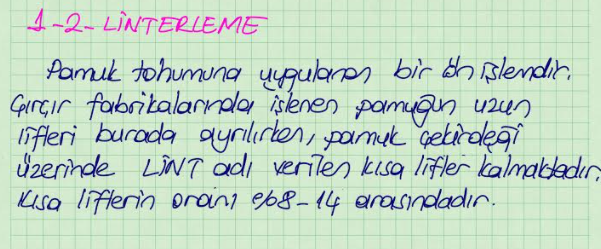 1-2-LİNTERLEME
Pamuk tohumuna uygulanan bir ön işlemdir.
Çırçır fabrikalarında işlenen pamuğun uzun
lifleri burada ayrılırken, pamuk çekirdeği
üzerinde LİNT adı verilen kısa lifler kalmaktadır.
Kısa liflerin oranı %8-14 arasındadır.